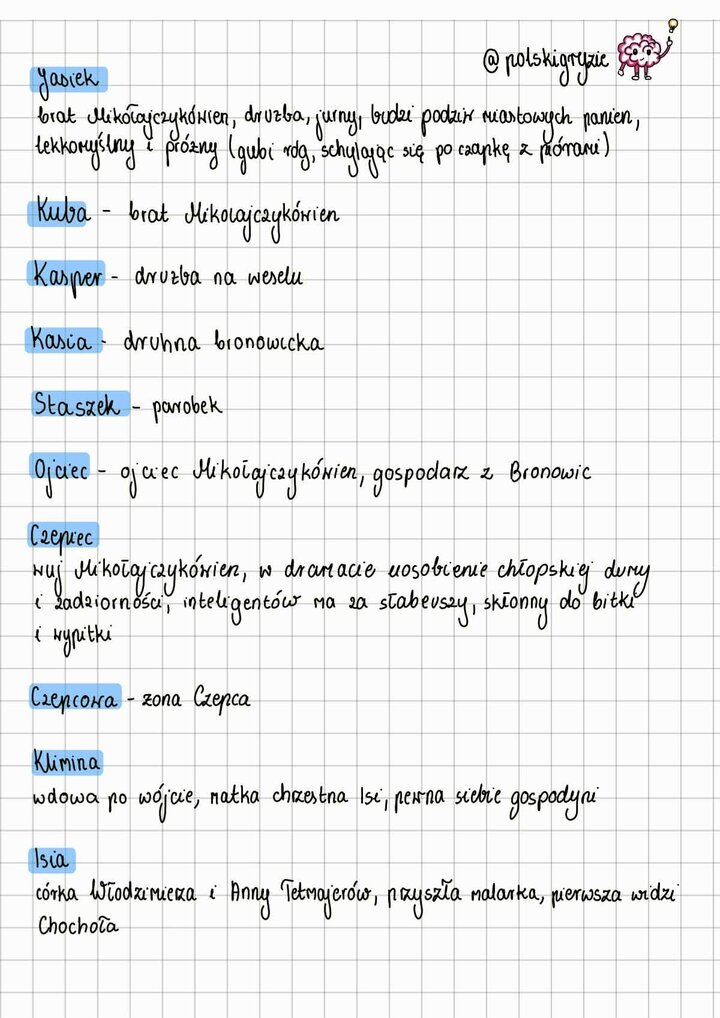 @polskigryzie
Jasiek
brat Mikołajczykówien, drużba, jurny, budzi podziw miastowych panien,
lekkomyślny i próżny (gubi róg, schylając się po czapkę z piórami)
Kuba - brat Mikołajczykówien
Kasper - drużba na weselu
Kasia - druhna bronowicka
Staszek - parobek
Ojciec - ojciec Mikołajczykówien, gospodarz z Bronowic
Czepiec
wuj Mikołajczykówien, w dramacie uosobienie chłopskiej dumy
i zadziorności, inteligentów ma za słabeuszy, skłonny do bitki
i wypitki
Czepcowa - żona Czepca
Klimina
wdowa po wójcie, matka chrzestna Isi, pewna siebie gospodyni
Isia
córka Włodzimierza i Anny Tetmajerów, przyszła malarka, pierwsza widzi
Chochoła